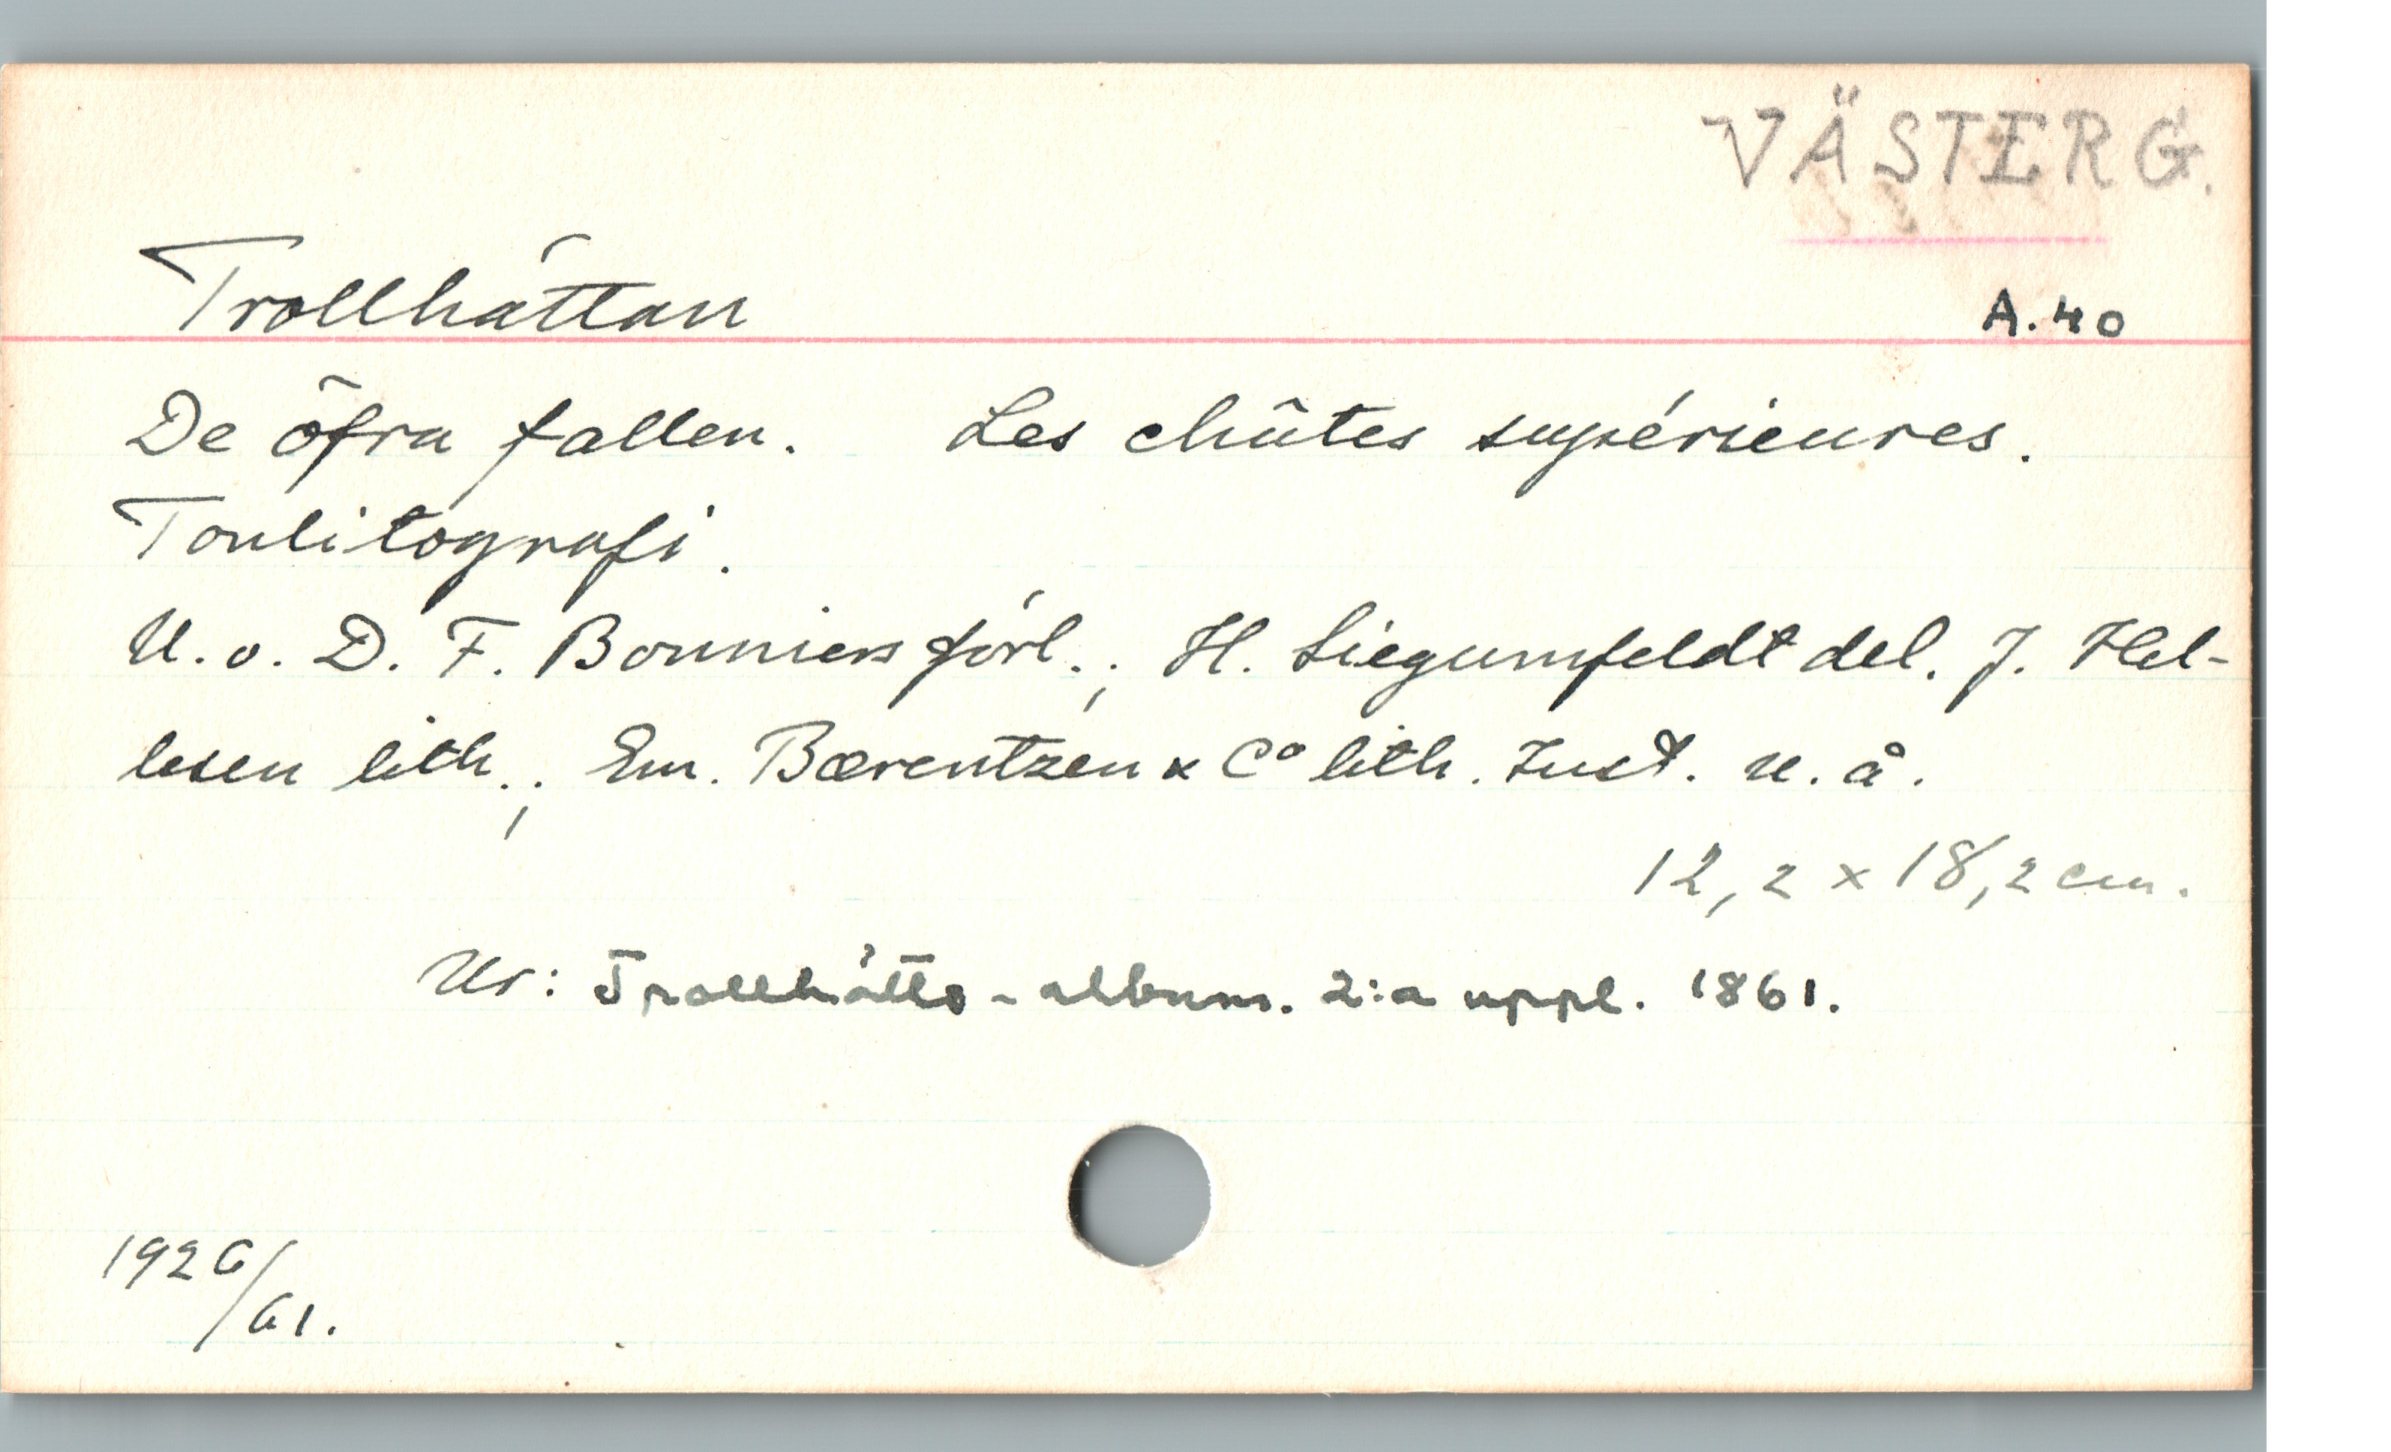 VÄSTERG.
Trollhättan A.40
De öfra fallen. Les chûtes supérieures.
Tonlitografi.
U. o. D. F. Bonniers förl.; H. Siegumfeldt del. J. Hel-
lesen lith.; Em. Bærentzen & Co lith. Inst. u. å.
12,2 x 18,2 cm.
Ur: Trollhätte-album. 2:a uppl. 1861.
1926/61.